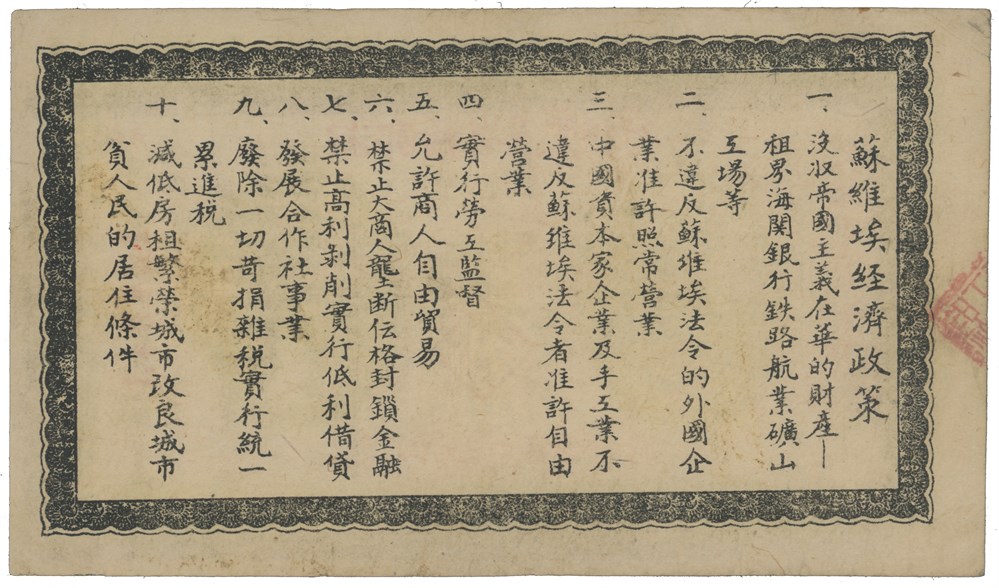 蘇維埃経濟政策
一、沒收帝國主義在華的財產—
租界海関銀行鉄路航業礦山
工場等
二、不違反蘇維埃法令的外國企
業准許照常營業
三、中國資本家企業及手工業不
違反蘇維埃法令者准許自由
營業
四、實行勞工監督
五、允許商人自由貿易
六、禁止大商人壟断伝格封鎖金融
七、禁止高利剥削實行低利借貸
八、發展合作社事業
九、廢除一切苛捐雜稅實行統一
累進税
十、減低房租繁榮城市改良城市
貧人民的居住條件